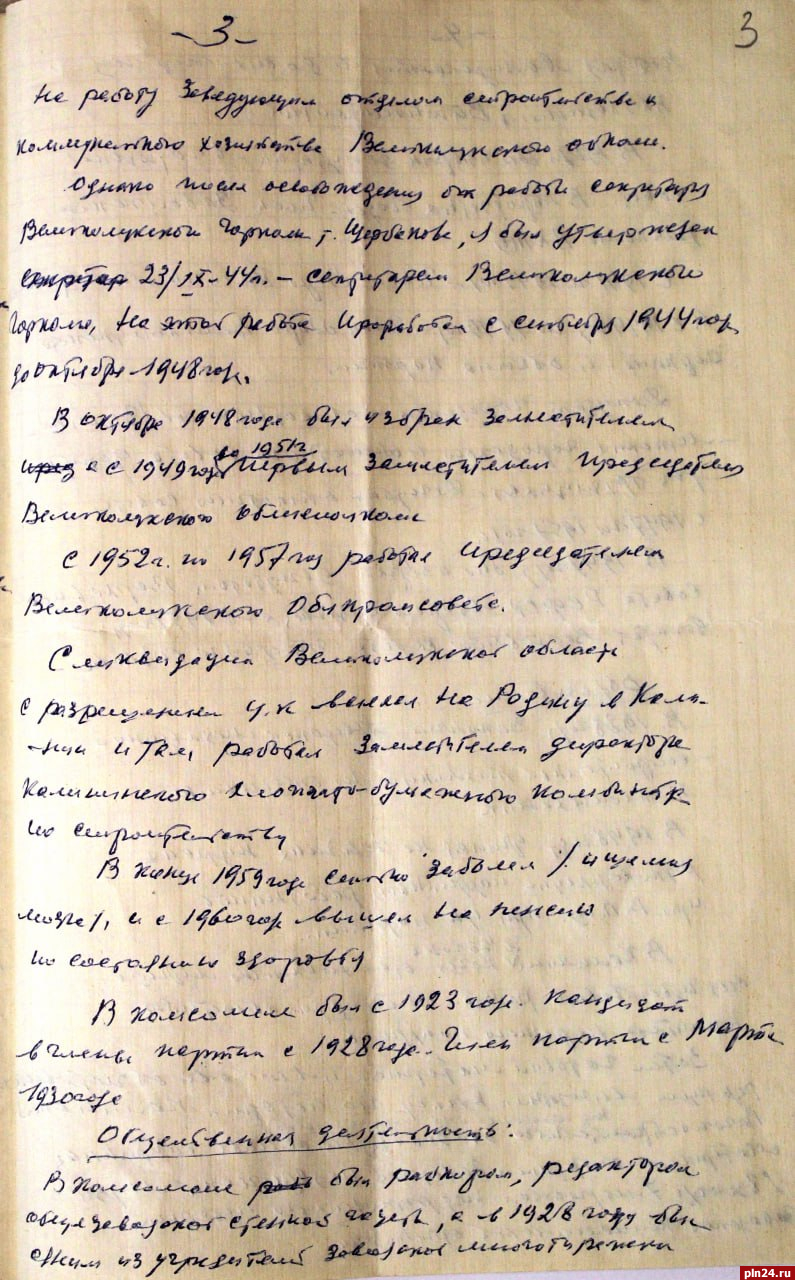 -3-
3
на работу Заведующим отделом строительства и
коммунального хозяйства Великолукского обкома.
Однако после освобождения от работы секретаря
Великолукского Горкома т. Щербакова, я был утвержден
секретар 23/IX-44г. – секретарем Великолукского
Горкома, на этой работе проработал с сентября 1944 год
до октября 1948 год.
В октябре 1948 года был избран заместителем
пред а с 1949 года до 1951г первым заместителем председателя
Великолукского облисполкома
С 1952г. по 1957 год работал председателем
Великолукского Облпромсовета.
С ликвидации Великолукской области
с разрешения ЦК выехал на Родину в Кали-
-нин и там работал заместителем директора
Калининского хлопчато-бумажного комбината
по строительству
В конце 1959 года сильно заболел /ишемия
мозга/, и с 1960 год вышел на пенсию
по состоянию здоровья
В комсомоле был с 1923 года. Кандидат
в члены партии с 1928 года. Член партии с Марта
1930 года
Общественная деятельность:
В комсомоле раб был рабкором, редактором
общезаводской стенной газеты, а в 1928 году был
одним из учредителей заводской многотиражки
pln24.ru